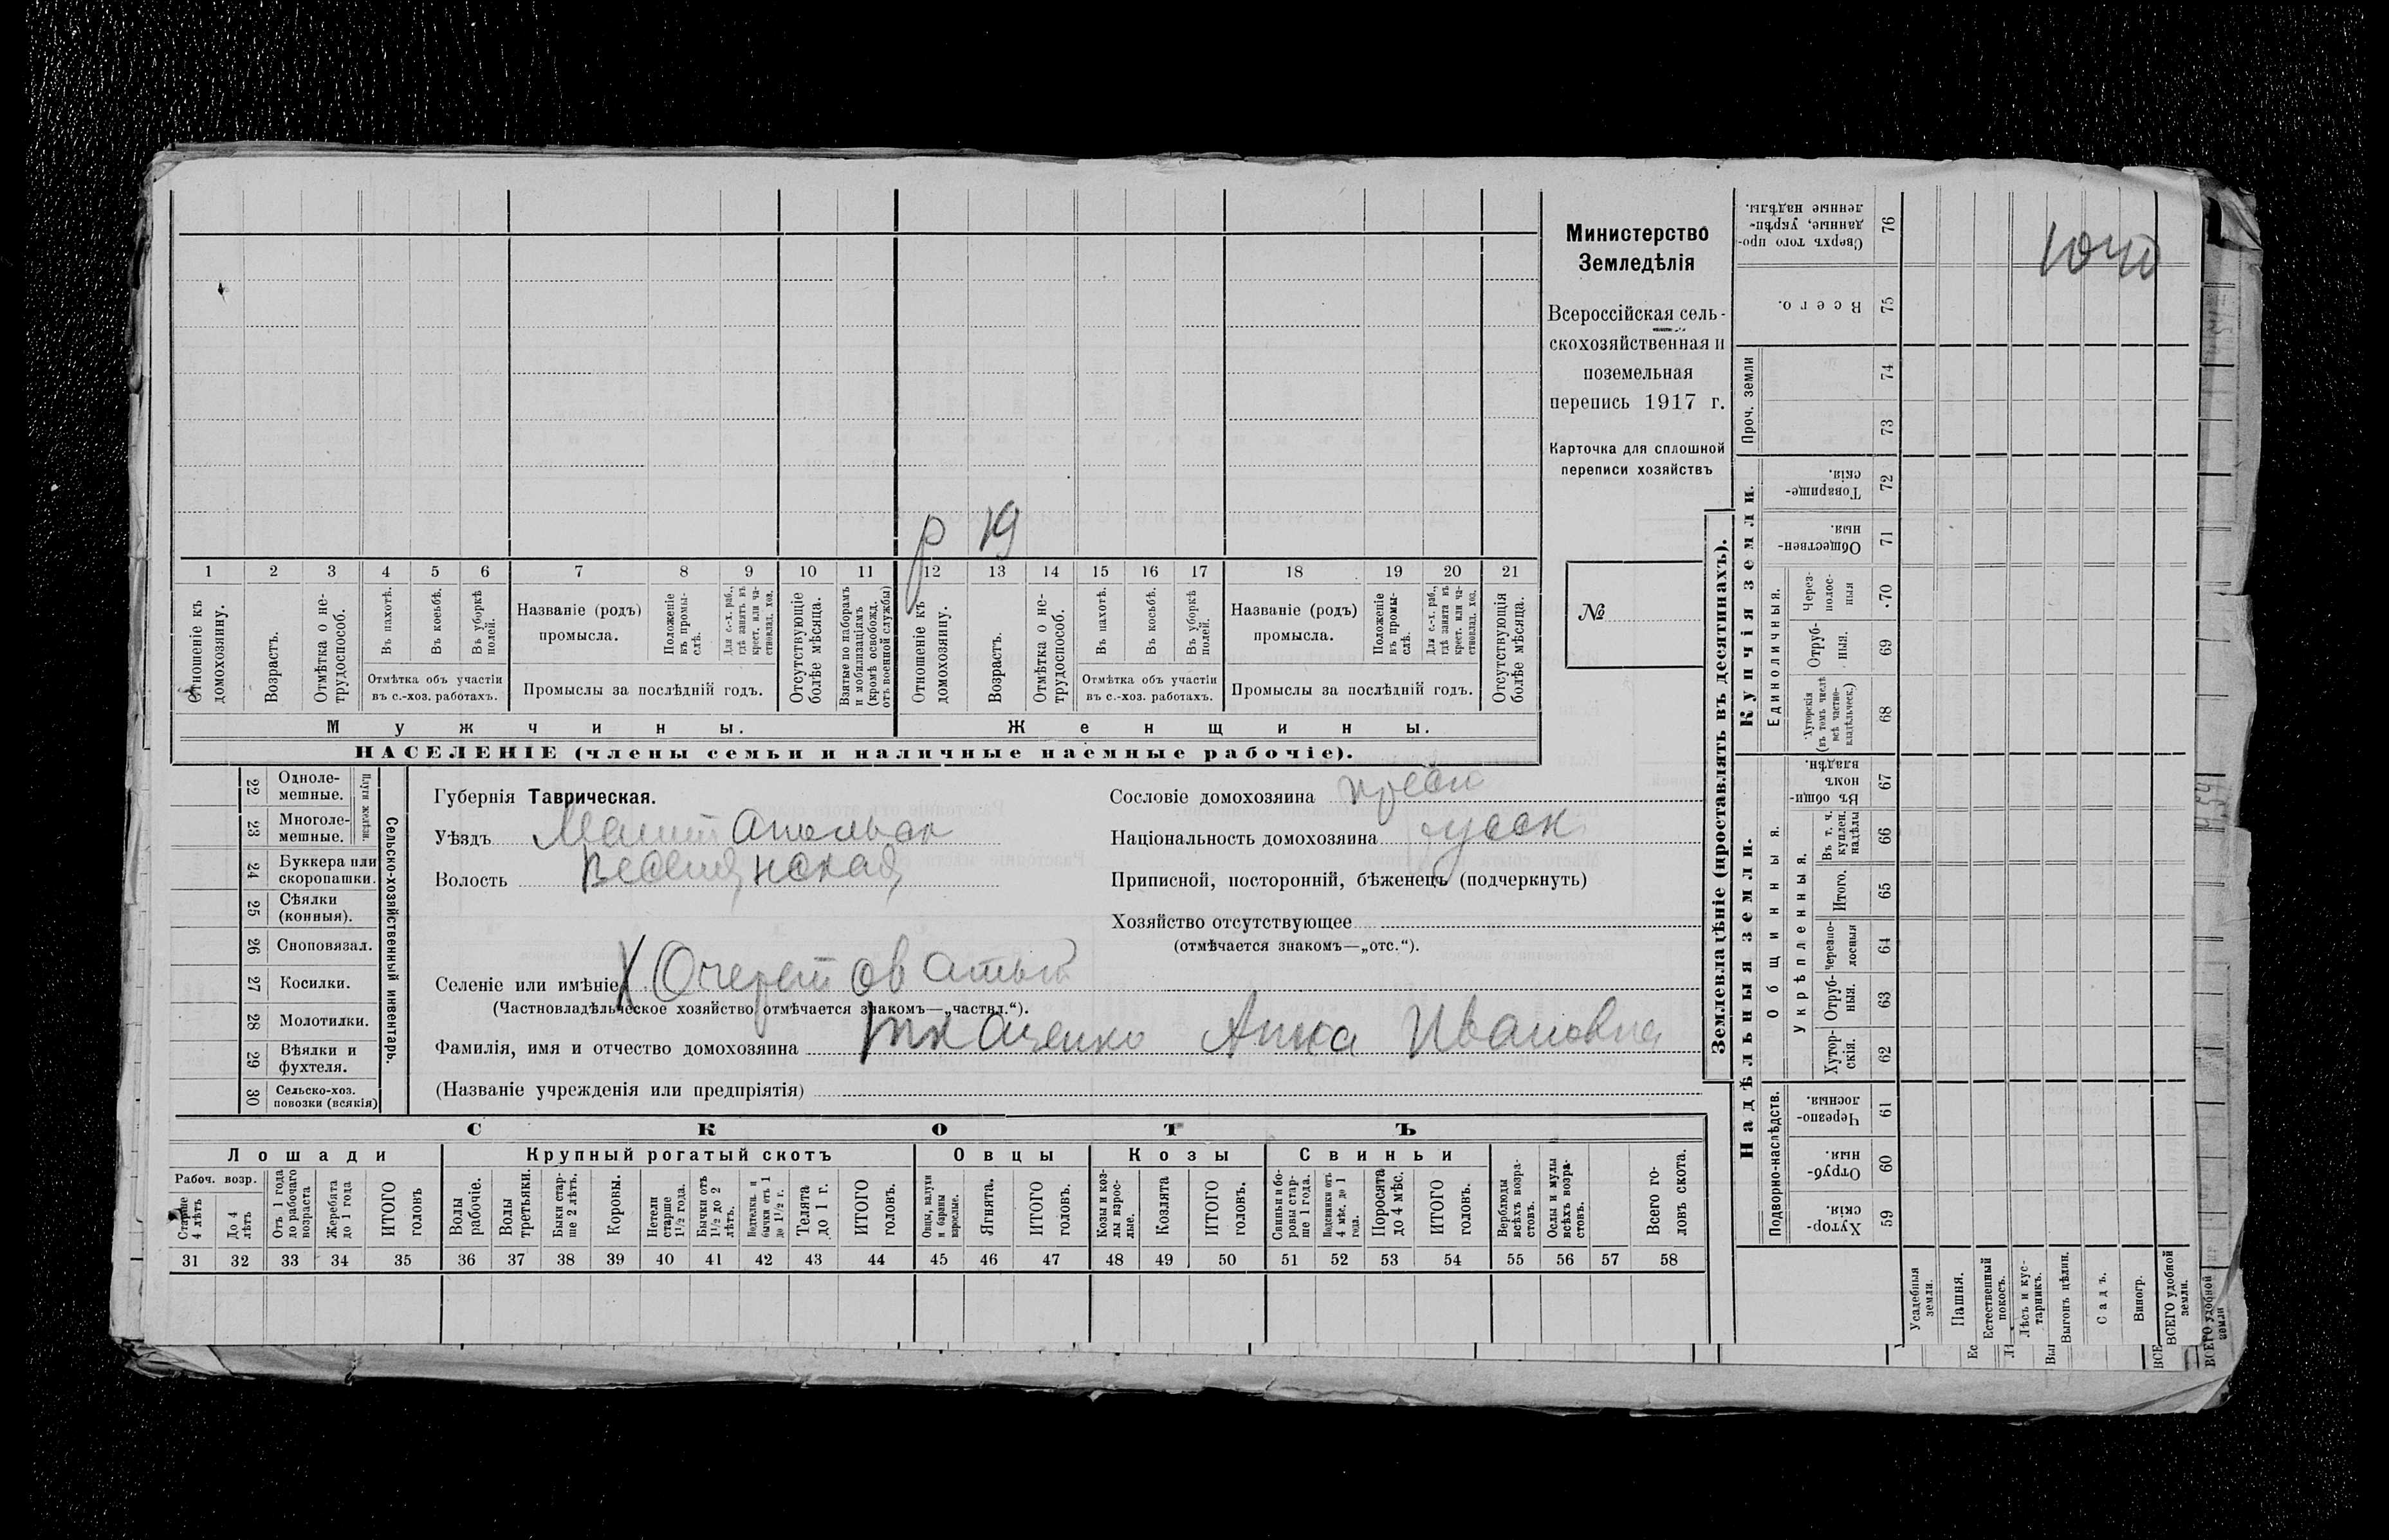 р 19
1 2 3 4 5 6 7 8 9 10 11 12 13 14 15 16 17 18 19 20 21
Отношеніе къ домохозяину.
Возрастъ.
Отмѣтка о нетрудоспособ.
Въ пахотѣ.
Въ косьбѣ.
Въ уборкѣ полей.
Отмѣтка объ участіи
въ с.-хоз. работахъ.
Названіе (родъ)
промысла.
Положеніе въ промыслѣ.
Для с.-х. раб., гдѣ занятъ въ крест. или частновлад. хоз.
Промыслы за послѣдній годъ.
Отсутствующіе болѣе мѣсяца.
Взятые по наборамъ и мобилизаціямъ (кромѣ освобожд. отъ военной службы)
Отношеніе къ домохозяину.
Возрастъ.
Отмѣтка о нетрудоспособ.
Въ пахотѣ.
Въ косьбѣ.
Въ уборкѣ полей.
Отмѣтка объ участіи
въ с.-хоз. работахъ.
Названіе (родъ)
промысла.
Положеніе въ промыслѣ.
Для с.-х. раб., гдѣ занята въ крест. или частновлад. хоз.
Промыслы за послѣдній годъ.
Отсутствующія болѣе мѣсяца.
Мужчины.
Женщины.
НАСЕЛЕНІЕ (члены семьи и наличные наемные рабочіе).
Министерство
Земледѣлія
Всероссійская сель-
скохозяйственная и
поземельная
перепись 1917 г.
Карточка для сплошной
переписи хозяйствъ
№
22 Одноле-
мешные.
23 Многоле-
мешные.
Плуги желѣзн.
24 Буккера или
скоропашки.
25 Сѣялки
(конныя).
26 Сноповязал.
27 Косилки.
28 Молотилки.
29 Вѣялки и
фухтеля.
30 Сельско-хоз.
повозки (всякія)
Сельско-хозяйственный инвентарь.
Губернія Таврическая.
Уѣздъ Мелитопольск
Волость Веселянская
Селеніе или имѣніе х Очеретоватый
(Частновладѣльческое хозяйство отмѣчается знакомъ—„частвл.“).
Фамилія, имя и отчество домохозяина Ткаченко Анна Ивановна
(Названіе учрежденія или предпріятія)
Сословіе домохозяина крест
Національность домохозяина русск
Приписной, посторонній, бѣженецъ (подчеркнуть)
Хозяйство отсутствующее
(отмѣчается знакомъ—„отс.“).
СКОТЪ
Лошади
Крупный рогатый скотъ
Овцы
Козы
Свиньи
Рабоч. возр.
Старше 4 лѣтъ
До 4 лѣтъ
Отъ 1 года до рабочаго возраста
Жеребята до 1 года
ИТОГО головъ
Волы рабочіе.
Волы третьяки.
Быки старше 2 лѣтъ.
Коровы.
Нетели старше 1½ года.
Бычки отъ 1½ до 2 лѣтъ.
Подтелки. и бычки отъ 1 до 1½ г.
Телята до 1 г.
ИТОГО головъ.
Овцы, валухи и бараны взрослые.
Ягнята.
ИТОГО головъ.
Козы и козлы взрослые.
Козлята
ИТОГО головъ.
Свиньи и боровы старше 1 года.
Подсвинки отъ 4 мѣс. до 1 года.
Поросята до 4 мѣс.
ИТОГО головъ.
Верблюды всѣхъ возрастовъ.
Ослы и мулы всѣхъ возрастовъ.
Всего головъ скота.
31 32 33 34 35 36 37 38 39 40 41 42 43 44 45 46 47 48 49 50 51 52 53 54 55 56 57 58
Землевладѣніе (проставлять въ десятинахъ).
Купчія земли.
Надѣльныя земли.
Сверхъ того проданные, укрѣпленные надѣлы. 76
Всего. 75
Проч. земли
74
73
Товарищескія. 72
Общественныя. 71
Единоличныя.
Черезполосныя 70
Отрубныя. 69
Хуторскія (въ томъ числѣ всѣ частновладѣльческ.) 68
Общинныя.
Въ общинномъ владѣн. 67
Укрѣпленныя.
Въ т. ч. куплен. надѣлы 66
Итого. 65
Черезполосныя 64
Отрубныя. 63
Хуторскія. 62
Подворно-наслѣдств.
Черезполосныя. 61
Отрубныя. 60
Хуторскія. 59
Усадебныя земли.
Пашня.
Естественный покосъ.
Лѣсъ и кустарникъ.
Выгонъ цѣлин.
Садъ.
Виногр.
ВСЕГО удобной земли.
ВСЕГО удобной земли